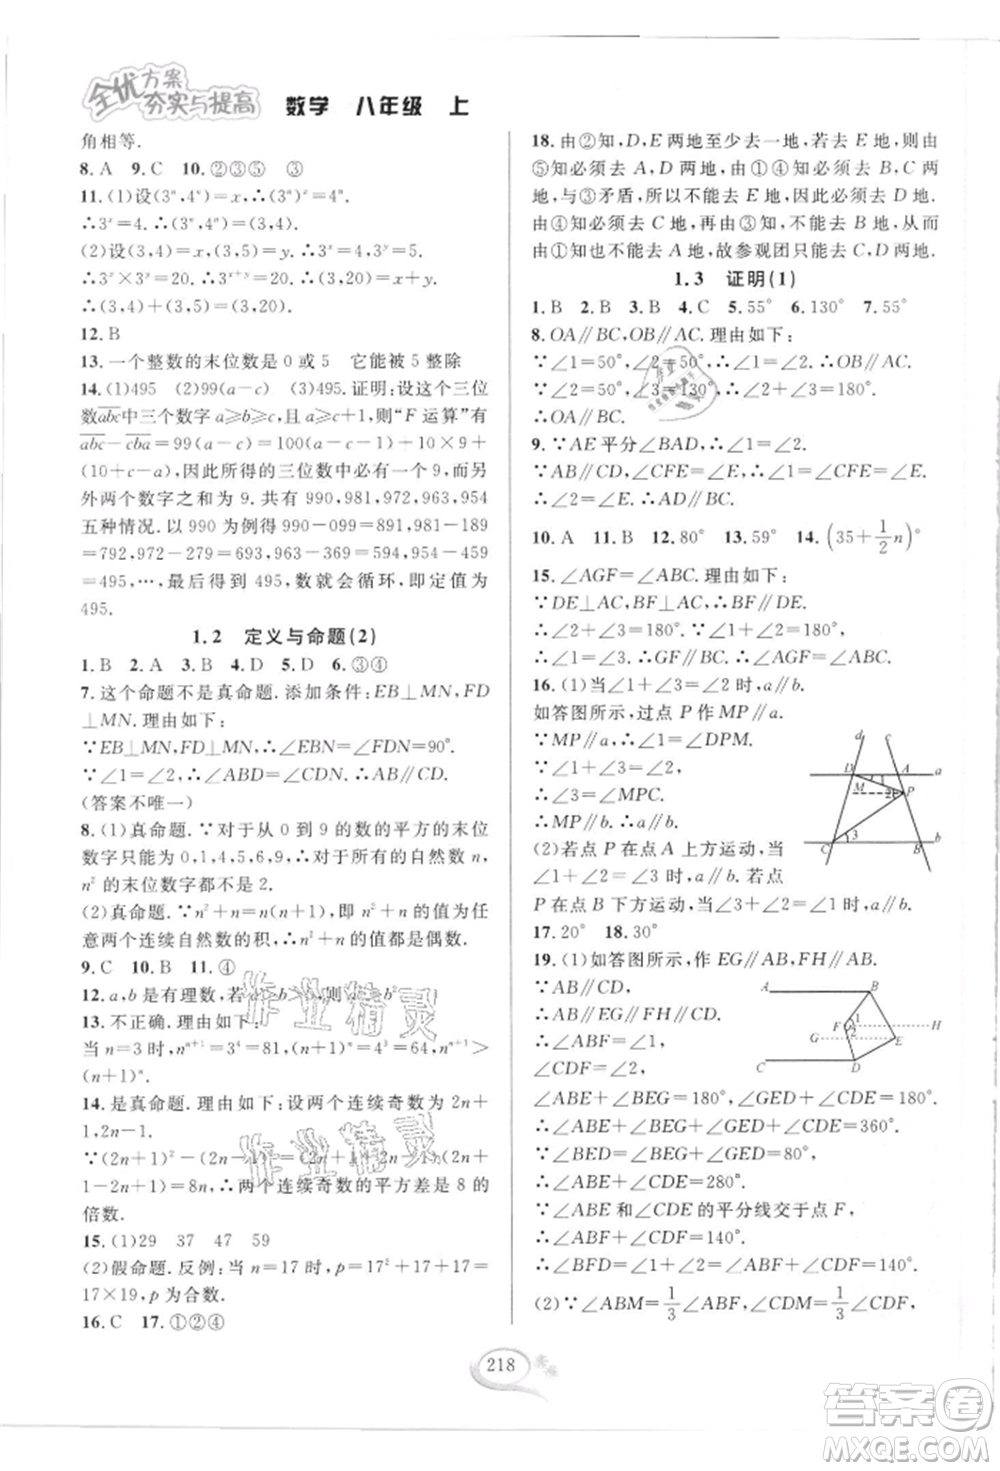 全优方案
夯实与提高
数学 八年级 上
角相等.
8. A 9. C 10. ②③⑤ ③
11. (1)设(3ⁿ,4ⁿ)=x,∴(3ⁿ)ˣ=4ⁿ.
∴3ˣ=4.∴(3ⁿ,4ⁿ)=(3,4).
(2)设(3,4)=x,(3,5)=y.∴3ˣ=4,3ʸ=5.
∴3ˣ×3ʸ=20.∴3ˣ⁺ʸ=20.∴(3,20)=x+y.
∴(3,4)+(3,5)=(3,20).
12. B
13. 一个整数的末位数是 0 或 5 它能被 5 整除
14. (1)495 (2)99(a-c) (3)495.证明:设这个三位
数abc中三个数字 a≥b≥c,且 a≥c+1,则“F 运算”有
abc-cba=99(a-c)=100(a-c-1)+10×9+
(10+c-a),因此所得的三位数中必有一个 9,而另
外两个数字之和为 9.共有 990,981,972,963,954
五种情况.以 990 为例得:990-099=891,981-189
=792,972-279=693,963-369=594,954-459=
495,…,最后得到 495,数就会循环,即定值为
495.
1.2 定义与命题(2)
1. B 2. A 3. B 4. D 5. D 6. ③④
7. 这个命题不是真命题.添加条件:EB⊥MN,FD
⊥MN.理由如下:
∵EB⊥MN,FD⊥MN,∴∠EBN=∠FDN=90°.
∵∠1=∠2,∴∠ABD=∠CDN.∴AB∥CD.
(答案不唯一)
8. (1)真命题.∵对于从 0 到 9 的数的平方的末位
数字只能为 0,1,4,5,6,9,∴对于所有的自然数 n,
n²的末位数字都不是 2.
(2)真命题.∵n²+n=n(n+1),即 n²+n 的值为任
意两个连续自然数的积,∴n²+n 的值都是偶数.
9. C 10. B 11. ④
12. a,b 是有理数,若 a>b>,则 a²>b²
13. 不正确.理由如下:
当 n=3 时,nⁿ⁺¹=3⁴=81,(n+1)ⁿ=4³=64,nⁿ⁺¹>
(n+1)ⁿ.
14. 是真命题.理由如下:设两个连续奇数为 2n+
1,2n-1.
∵(2n+1)²-(2n-1)²=(2n+1+2n-1)(2n+
1-2n+1)=8n.∴两个连续奇数的平方差是 8 的
倍数.
15. (1)29 37 47 59
(2)假命题.反例:当 n=17 时,p=17²+17+17=
17×19,p 为合数.
16. C 17. ①②④
18. 由②知,D,E 两地至少去一地,若去 E 地,则由
⑤知必须去 A,D 两地,由①④知必须去 B,C 两地,
与③矛盾,所以不能去 E 地,因此必须去 D 地.由
④知必须去 C 地.再由③知,不能去 B 地,从而
由①知也不能去 A 地,故参观团只能去 C,D 两地.
1.3 证明(1)
1. B 2. B 3. B 4. C 5. 55° 6. 130° 7. 55°
8. OA∥BC,OB∥AC.理由如下:
∵∠1=50°,∠2=50°,∴∠1=∠2.∴OB∥AC.
∵∠2=50°,∠3=130°,∴∠2+∠3=180°.
∴OA∥BC.
9. ∵AE 平分∠BAD,∴∠1=∠2.
∵AB∥CD,∠CFE=∠E,∴∠1=∠CFE=∠E.
∴∠2=∠E.∴AD∥BC.
10. A 11. B 12. 80° 13. 59° 14. (35+1/2n)°
15. ∠AGF=∠ABC.理由如下:
∵DE⊥AC,BF⊥AC,∴BF∥DE.
∴∠2+∠3=180°.∵∠1+∠2=180°,
∴∠1=∠3.∴GF∥BC.∴∠AGF=∠ABC.
16. (1)当∠2=∠1+∠3 时,a∥b.
如答图所示,过点 P 作 MP∥a.
∵MP∥a,∴∠1=∠DPM.
∵∠2=∠1+∠3,
∴∠3=∠MPC.
∴MP∥b.∴a∥b.
(2)若点 P 在点 A 上方运动,当
∠2+∠1=∠3 时,a∥b.若点
P 在点 B 下方运动,当∠1=∠2+∠3 时,a∥b.
d c
D 1 A a
M 2 P
3
C B b
17. 20° 18. 30°
19. (1)如答图所示,作 EG∥AB,FH∥AB.
∵AB∥CD,
∴AB∥EG∥FH∥CD.
∴∠ABF=∠1,
∠CDF=∠2,
A B
F 1 2 H
G E
C D
∠ABE+∠BEG=180°,∠GED+∠CDE=180°.
∴∠ABE+∠BEG+∠GED+∠CDE=360°.
∵∠BED=∠BEG+∠GED=80°,
∴∠ABE+∠CDE=280°.
∵∠ABE 和∠CDE 的平分线交于点 F,
∴∠ABF+∠CDF=140°.
∴∠BFD=∠1+∠2=∠ABF+∠CDF=140°.
(2)∵∠ABM=1/3∠ABF,∠CDM=1/3∠CDF,
218
作业精灵
作业精灵
答案圈
MXQE.COM